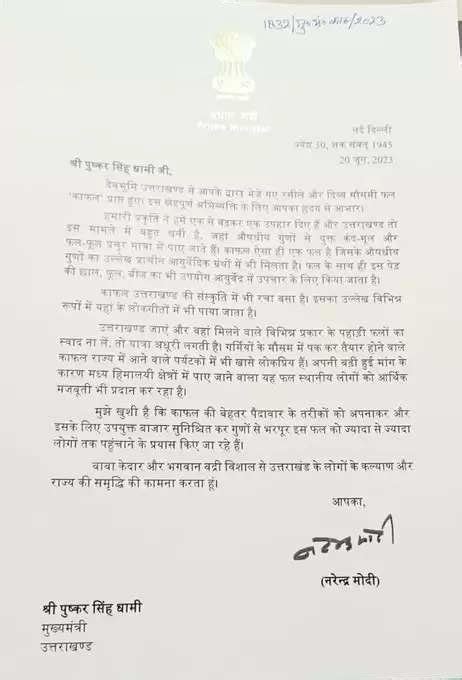 1832/
/2023
प्रधान मंत्री
Prime Minister
नई दिल्ली
ज्येष्ठ 30, शक संवत् 1945
20 जून, 2023
श्री पुष्कर सिंह धामी जी,
देवभूमि उत्तराखण्ड से आपके द्वारा भेजे गए रसीले और दिव्य मौसमी फल
'काफल' प्राप्त हुए। इस स्नेहपूर्ण अभिव्यक्ति के लिए आपका हृदय से आभार।
हमारी प्रकृति ने हमें एक से बढ़कर एक उपहार दिए हैं और उत्तराखण्ड तो
इस मामले में बहुत धनी है, जहां औषधीय गुणों से युक्त कंद-मूल और
फल-फूल प्रचुर मात्रा में पाए जाते हैं। काफल ऐसा ही एक फल है जिसके औषधीय
गुणों का उल्लेख प्राचीन आयुर्वेदिक ग्रंथों में भी मिलता है। फल के साथ ही इस पेड़
की छाल, फूल, बीज का भी उपयोग आयुर्वेद में उपचार के लिए किया जाता है।
काफल उत्तराखण्ड की संस्कृति में भी रचा बसा है। इसका उल्लेख विभिन्न
रूपों में यहां के लोकगीतों में भी पाया जाता है।
उत्तराखण्ड जाएं और वहां मिलने वाले विभिन्न प्रकार के पहाड़ी फलों का
स्वाद ना लें, तो यात्रा अधूरी लगती है। गर्मियों के मौसम में पक कर तैयार होने वाले
काफल राज्य में आने वाले पर्यटकों में भी खासे लोकप्रिय हैं। अपनी बढ़ी हुई मांग के
कारण मध्य हिमालयी क्षेत्रों में पाए जाने वाला यह फल स्थानीय लोगों को आर्थिक
मजबूती भी प्रदान कर रहा है।
मुझे खुशी है कि काफल की बेहतर पैदावार के तरीकों को अपनाकर और
इसके लिए उपयुक्त बाजार सुनिश्चित कर गुणों से भरपूर इस फल को ज्यादा से ज्यादा
लोगों तक पहुंचाने के प्रयास किए जा रहे हैं।
बाबा केदार और भगवान बद्री विशाल से उत्तराखंड के लोगों के कल्याण और
राज्य की समृद्धि की कामना करता हूं।
आपका,
नरेन्द्र मोदी
(नरेन्द्र मोदी)
श्री पुष्कर सिंह धामी
मुख्यमंत्री
उत्तराखण्ड